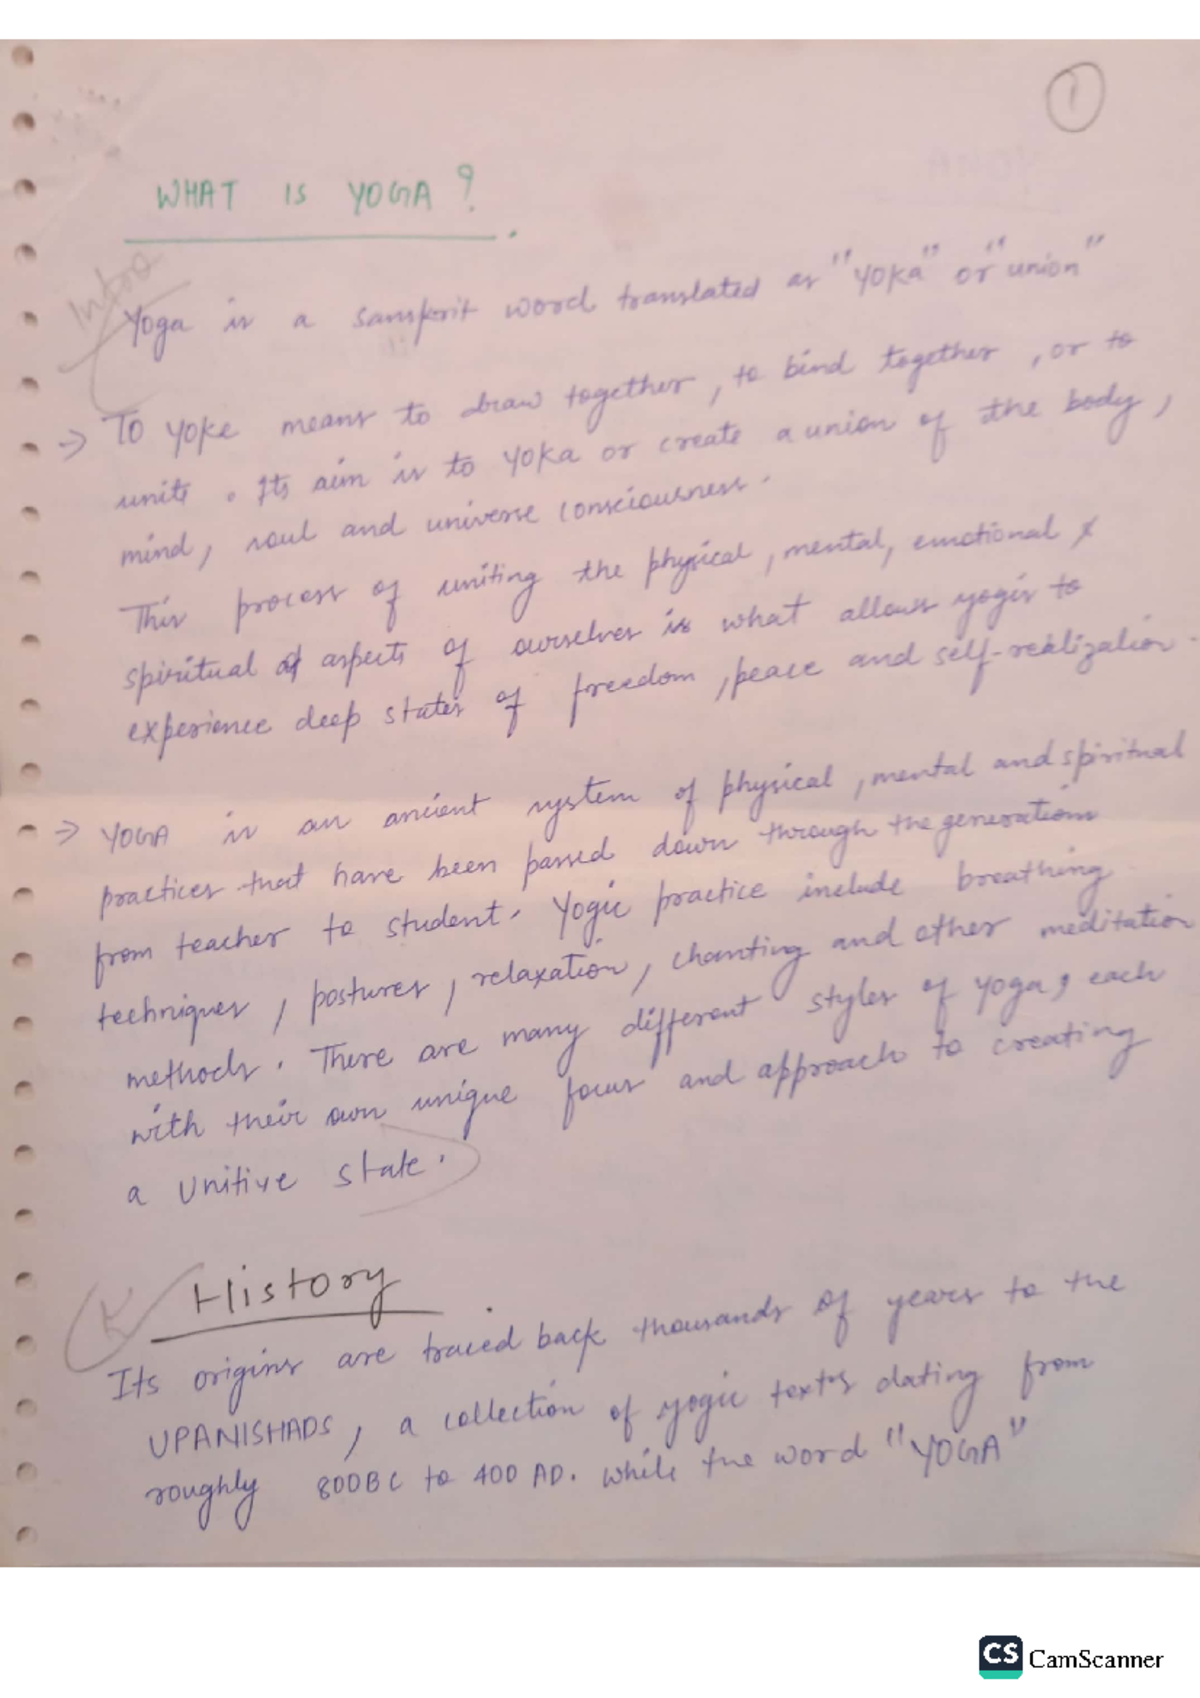 1
WHAT IS YOGA ?
Intro
Yoga is a sanskrit word translated as "YOKA" or "union"
→ To YOKE means to draw together, to bind together, or to
unite. Its aim is to YOKA or create a union of the body,
mind, soul and universe consciousness.
This process of uniting the physical, mental, emotional &
spiritual of aspects of ourselves is what allows yogis to
experience deep states of freedom, peace and self-realization.
→ YOGA is an ancient system of physical, mental and spiritual
practices that have been passed down through the generations
from teacher to student. Yogic practice include breathing
techniques, postures, relaxation, chanting and other meditation
methods. There are many different styles of yoga, each
with their own unique focus and approach to creating
a unitive state.
History
Its origins are traced back thousands of years to the
UPANISHADS, a collection of yogic texts dating from
roughly 800BC to 400 AD. While the word "YOGA"
CS CamScanner